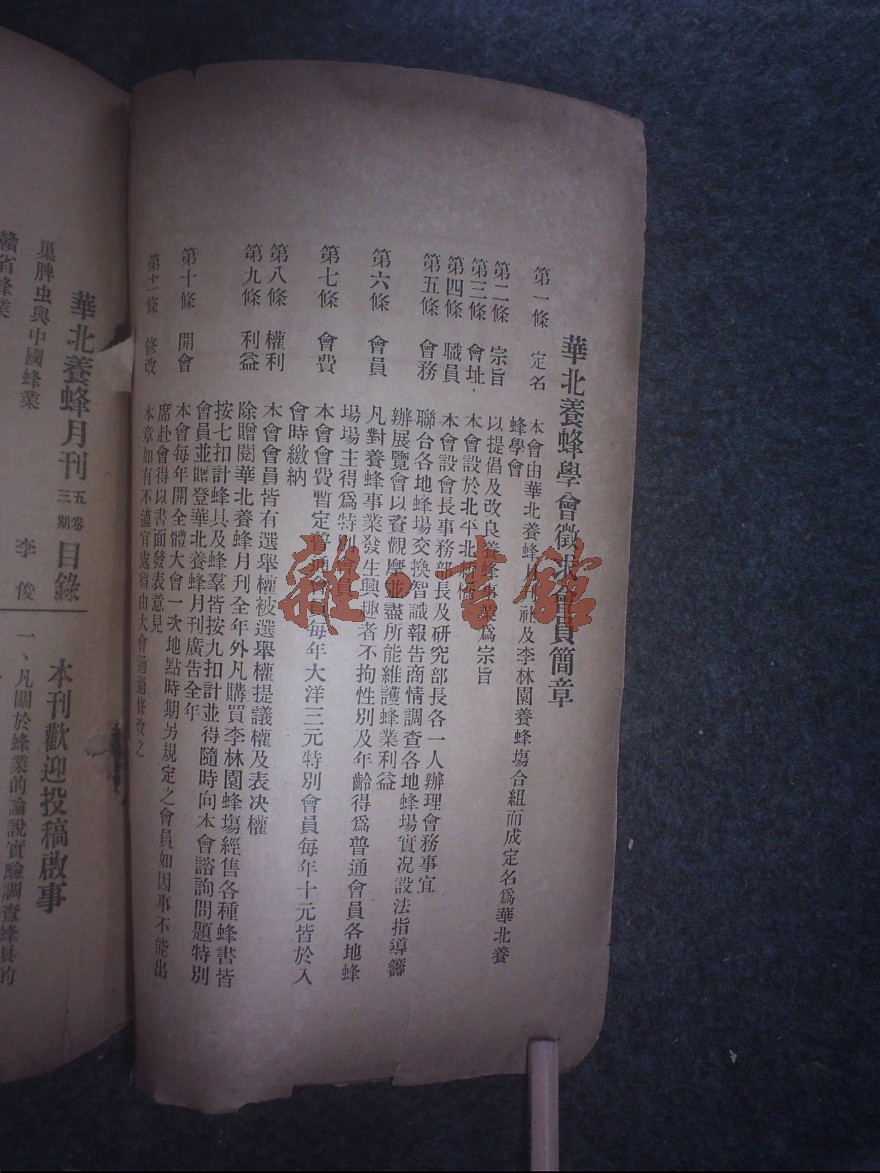 華北養蜂學會徵求會員簡章
第一條 定名 本會由華北養蜂月刊社及李林園養蜂塲合組而成定名爲華北養
蜂學會
第二條 宗旨 以提倡及改良養蜂事業爲宗旨
第三條 會址 本會設於北平北新橋
第四條 職員 本會設會長事務部長及研究部長各一人辦理會務事宜
第五條 會務 聯合各地蜂場交換智識報告商情調查各地蜂場實况設法指導籌
辦展覽會以資觀摩並盡所能維護蜂業利益
第六條 會員 凡對養蜂事業發生興趣者不拘性別及年齡得爲普通會員各地蜂
場場主得爲特別會員
第七條 會費 本會會費暫定普通會員每年大洋三元特別會員每年十元皆於入
會時繳納
第八條 權利 本會會員皆有選舉權被選舉權提議權及表决權
第九條 利益 除贈閱華北養蜂月刊全年外凡購買李林園蜂塲經售各種蜂書皆
按七扣計蜂具及蜂羣皆按九扣計並得隨時向本會諮詢問題特別
會員並贈登華北養蜂月刊廣告全年
第十條 開會 本會每年開全體大會一次地點時期另規定之會員如因事不能出
席赴會得以書面發表意見
第十一條 修改 本章如有不適宜處得由大會通過修改之
華北養蜂月刊 五卷三期 目錄
巢脾虫與中國蜂業 李俊
贛省蜂業
本刊歡迎投稿啟事
一、凡關於蜂業的論說實驗調查蜂具的
雜·書館